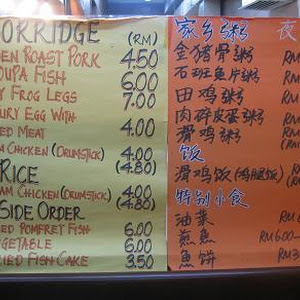 PORRIDGE (RM)
EN ROAST PORK 4.50
OUPA FISH 6.00
Y FROG LEGS 7.00
URY EGG WITH
ED MEAT 4.00
A CHICKEN (DRUMSTICK) 4.00
(4.80)
RICE
AM CHICKEN (DRUMSTICK) 4.00
(4.80)
SIDE ORDER
ED POMFRET FISH 6.00
EGETABLE 6.00
IED FISH CAKE 3.50
家乡粥 夜
金猪骨粥
石斑鱼片粥
田鸡粥
肉碎皮蛋粥
滑鸡粥
饭
滑鸡饭(鸡腿饭)
特别小食
油菜
煎魚 RM600
魚饼 RM3